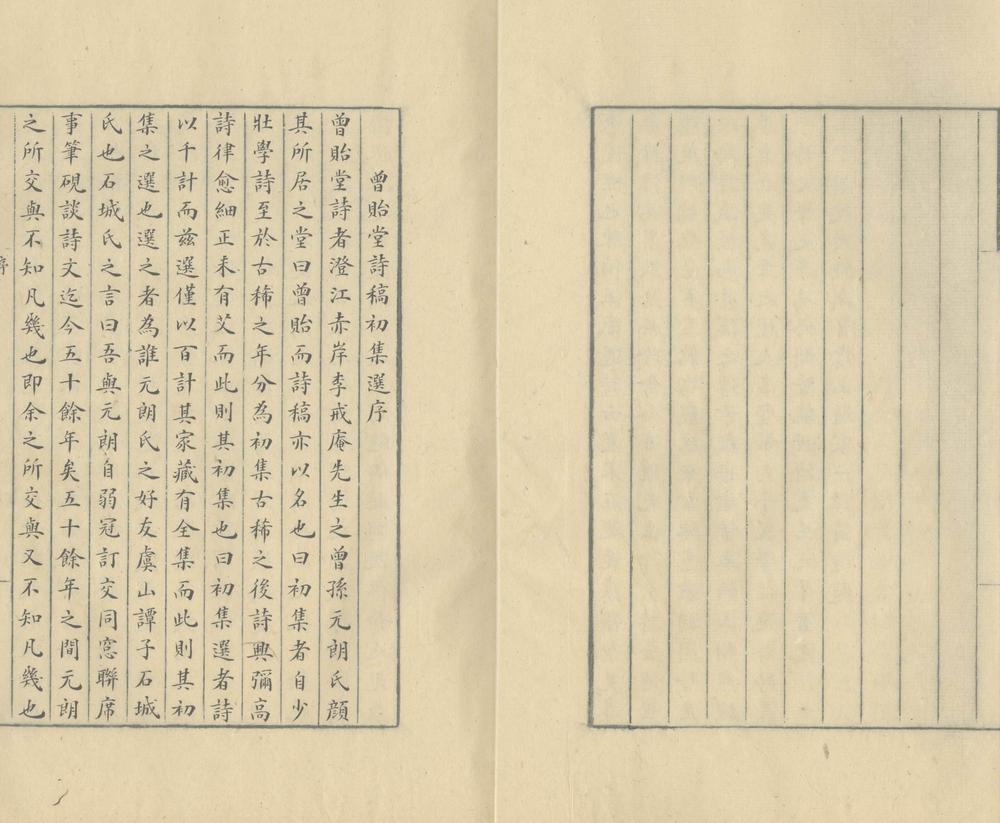 曾貽堂詩稿初集選序
曾貽堂詩者澄江赤岸李戒庵先生之曾孫元朗氏顔
其所居之堂曰曾貽而詩稿亦以名也曰初集者自少
壯學詩至於古稀之年分為初集古稀之後詩興彌高
詩律愈細正未有艾而此則其初集也曰初集選者詩
以千計而兹選僅以百計其家藏有全集而此則其初
集之選也選之者為誰元朗氏之好友虞山譚子石城
氏也石城氏之言曰吾與元朗自弱冠訂交同窓聯席
事筆硯談詩文迄今五十餘年矣五十餘年之間元朗
之所交與不知凡幾也即余之所交與又不知凡幾也
序